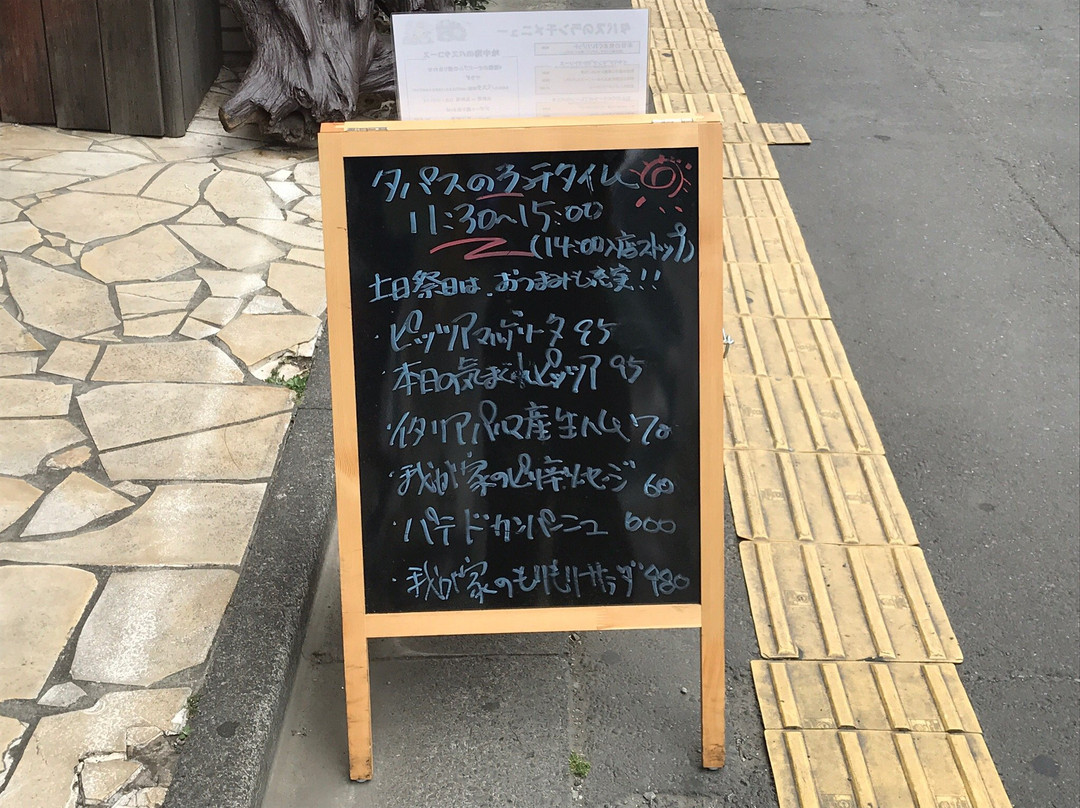 タパスのランチタイム
11:30〜15:00
(14:00入店ストップ)
土日祭日は、おつまみも充実!!
・ピッツアマルゲリータ 95
・本日の気まぐれピッツア 95
・イタリアパルマ産生ハム 70
・我が家のピリ辛ソーセージ 60
・パテドカンパーニュ 600
・我が家のもりもりサラダ 480